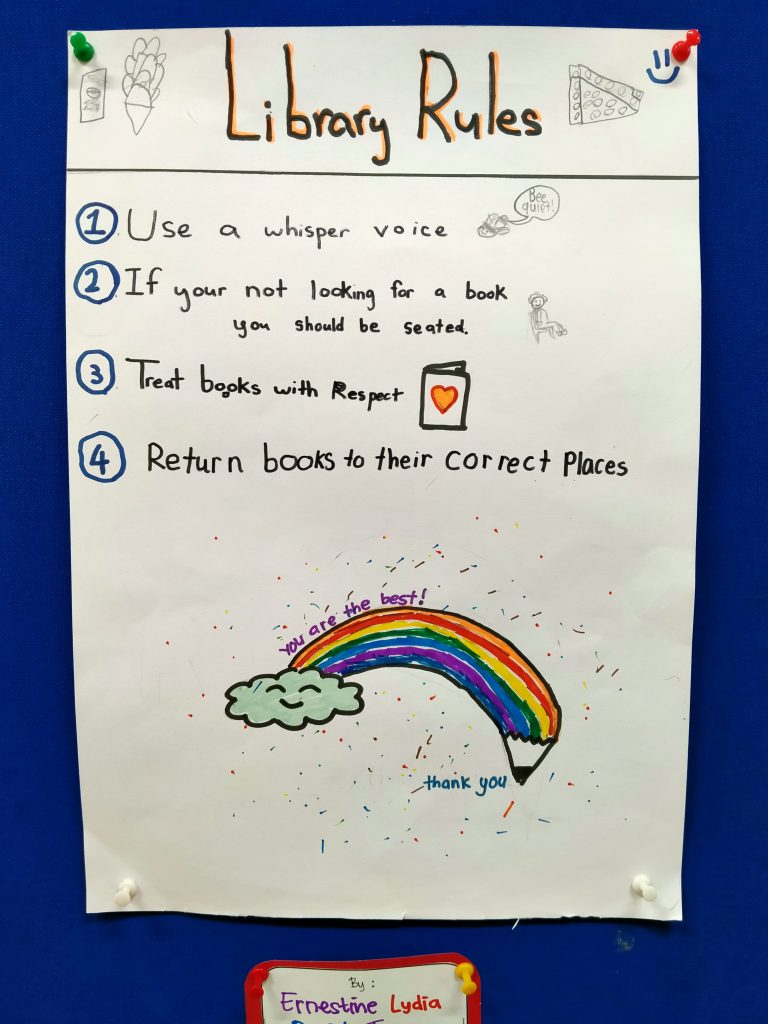 Library Rules
1 Use a whisper voice
Bee
quiet!
2 If your not looking for a book
you should be seated.
3 Treat books with Respect
4 Return books to their correct Places
you are the best!
thank you
By:
Ernestine Lydia